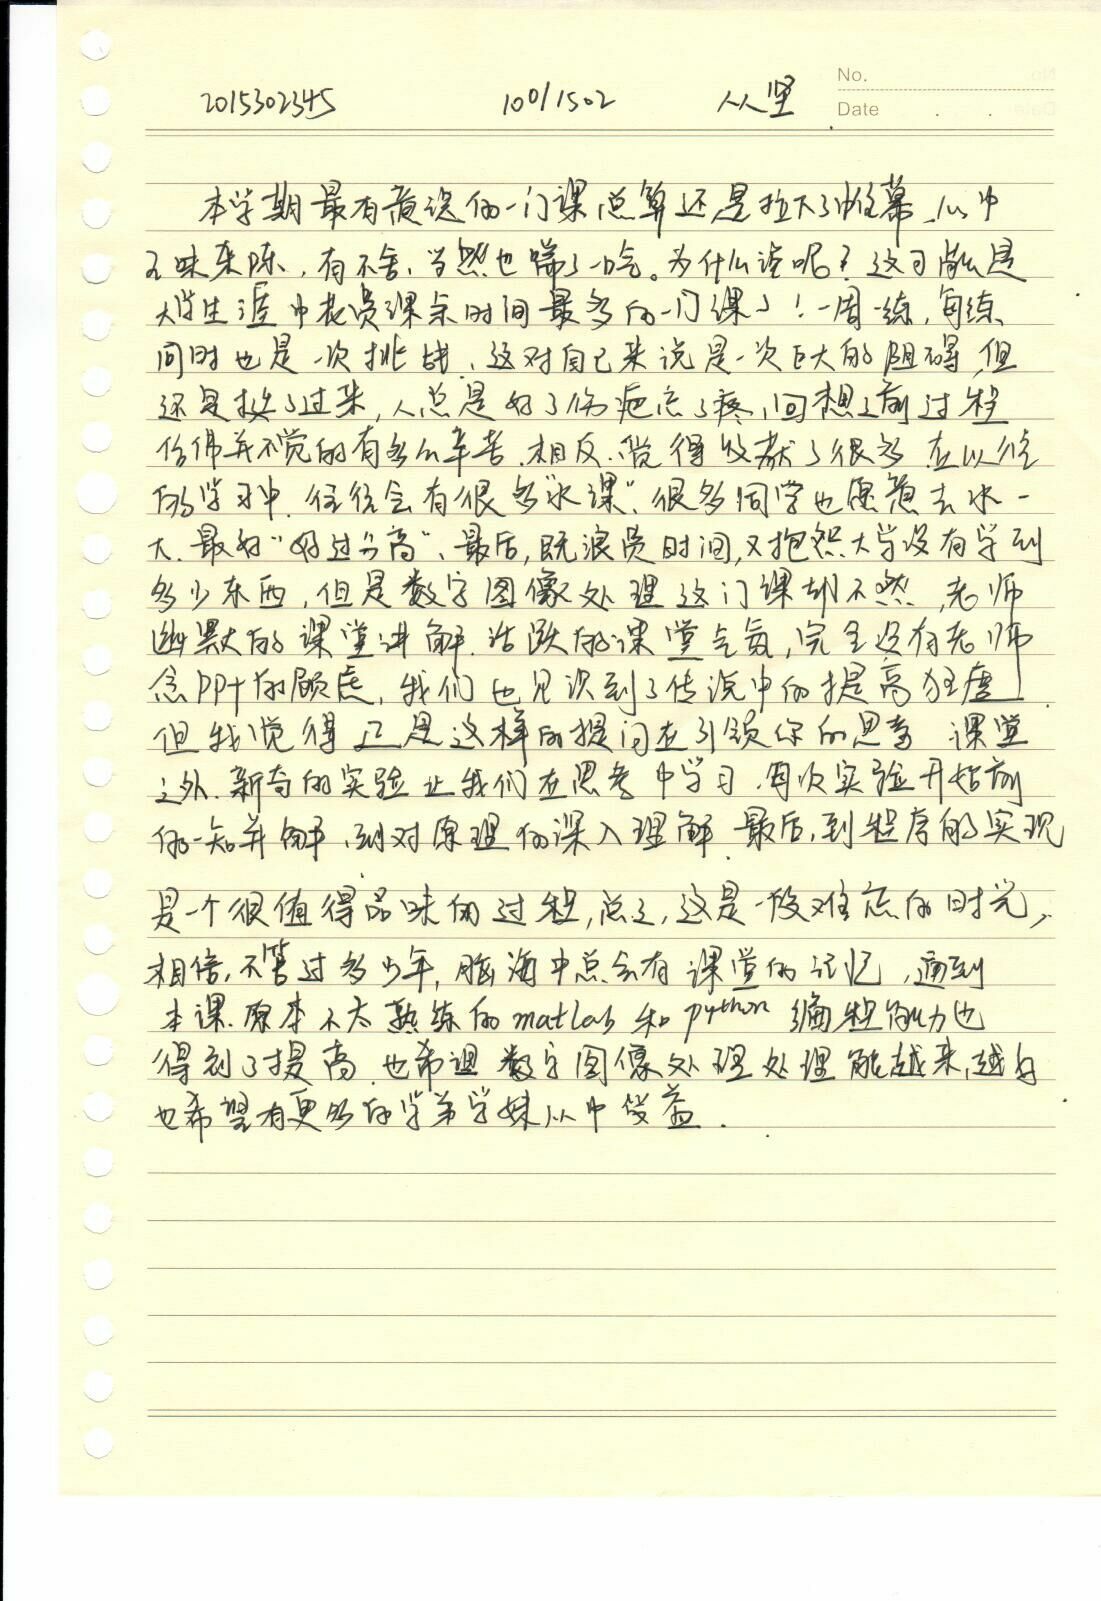 2015302345 1001/1502 从坚
No.
Date
本学期最有意识的一门课总算还是拉下了帷幕,心中
五味杂陈,有不舍,当然也喘了一口气。为什么说呢?这可能是
大学生涯中花费课余时间最多的一门课了!一周一练,每练
同时也是一次挑战,这对自己来说是一次巨大的阻碍,但
还是挨了过来,人总是好了伤疤忘了疼,回想之前过程
仿佛并不觉的有多么辛苦,相反,觉得收获了很多,在以往
的学习中,往往会有很多"水课",很多同学也愿意去水一
水,最好"好过分高",最后,既浪费时间,又抱怨大学没有学到
多少东西,但是数字图像处理这门课却不然,老师
幽默的课堂讲解,活跃的课堂气氛,完全没有老师
念PPT的顾虑,我们也见识到了传说中的提高狂虐
但我觉得正是这样的提问在引领你的思考 课堂
之外,新奇的实验让我们在思考中学习,每次实验开始前
的一知半解,到对原理的深入理解,最后,到程序的实现
是一个很值得品味的过程,总之,这是一段难忘的时光,
相信,不管过多少年,脑海中总会有课堂的记忆,通到
本课,原本不太熟练的matlab和python编程能力也
得到了提高,也希望数字图像处理处理能越来越好
也希望有更多的学弟学妹从中受益.